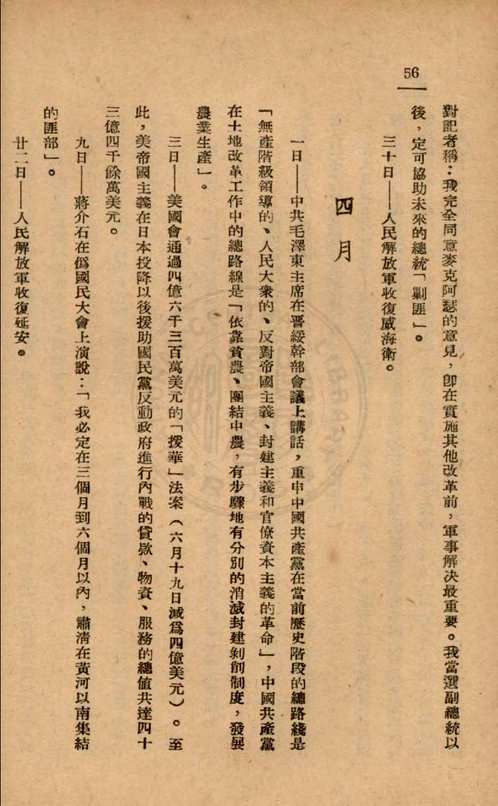 56
對記者稱：我完全同意麥克阿瑟的意見，卽在實施其他改革前，軍事解决最重要。我當選副總統以
後，定可協助未來的總統「剿匪」。
三十日——人民解放軍收復威海衛。
四月
一日——中共毛澤東主席在晋綏幹部會議上講話，重申中國共產黨在當前歷史階段的總路綫是
「無產階級領導的、人民大衆的、反對帝國主義、封建主義和官僚資本主義的革命」，中國共產黨
在土地改革工作中的總路線是「依靠貧農、團結中農，有步驟地有分別的消滅封建剝削制度，發展
農業生產」。
三日——美國會通過四億六千三百萬美元的「援華」法案（六月十九日减爲四億美元）。至
此，美帝國主義在日本投降以後援助國民黨反動政府進行內戰的貸欵、物資、服務的總值共達四十
三億四千餘萬美元。
九日——蔣介石在僞國民大會上演說：「我必定在三個月到六個月以內，肅清在黃河以南集結
的匪部」。
廿二日——人民解放軍收復延安。